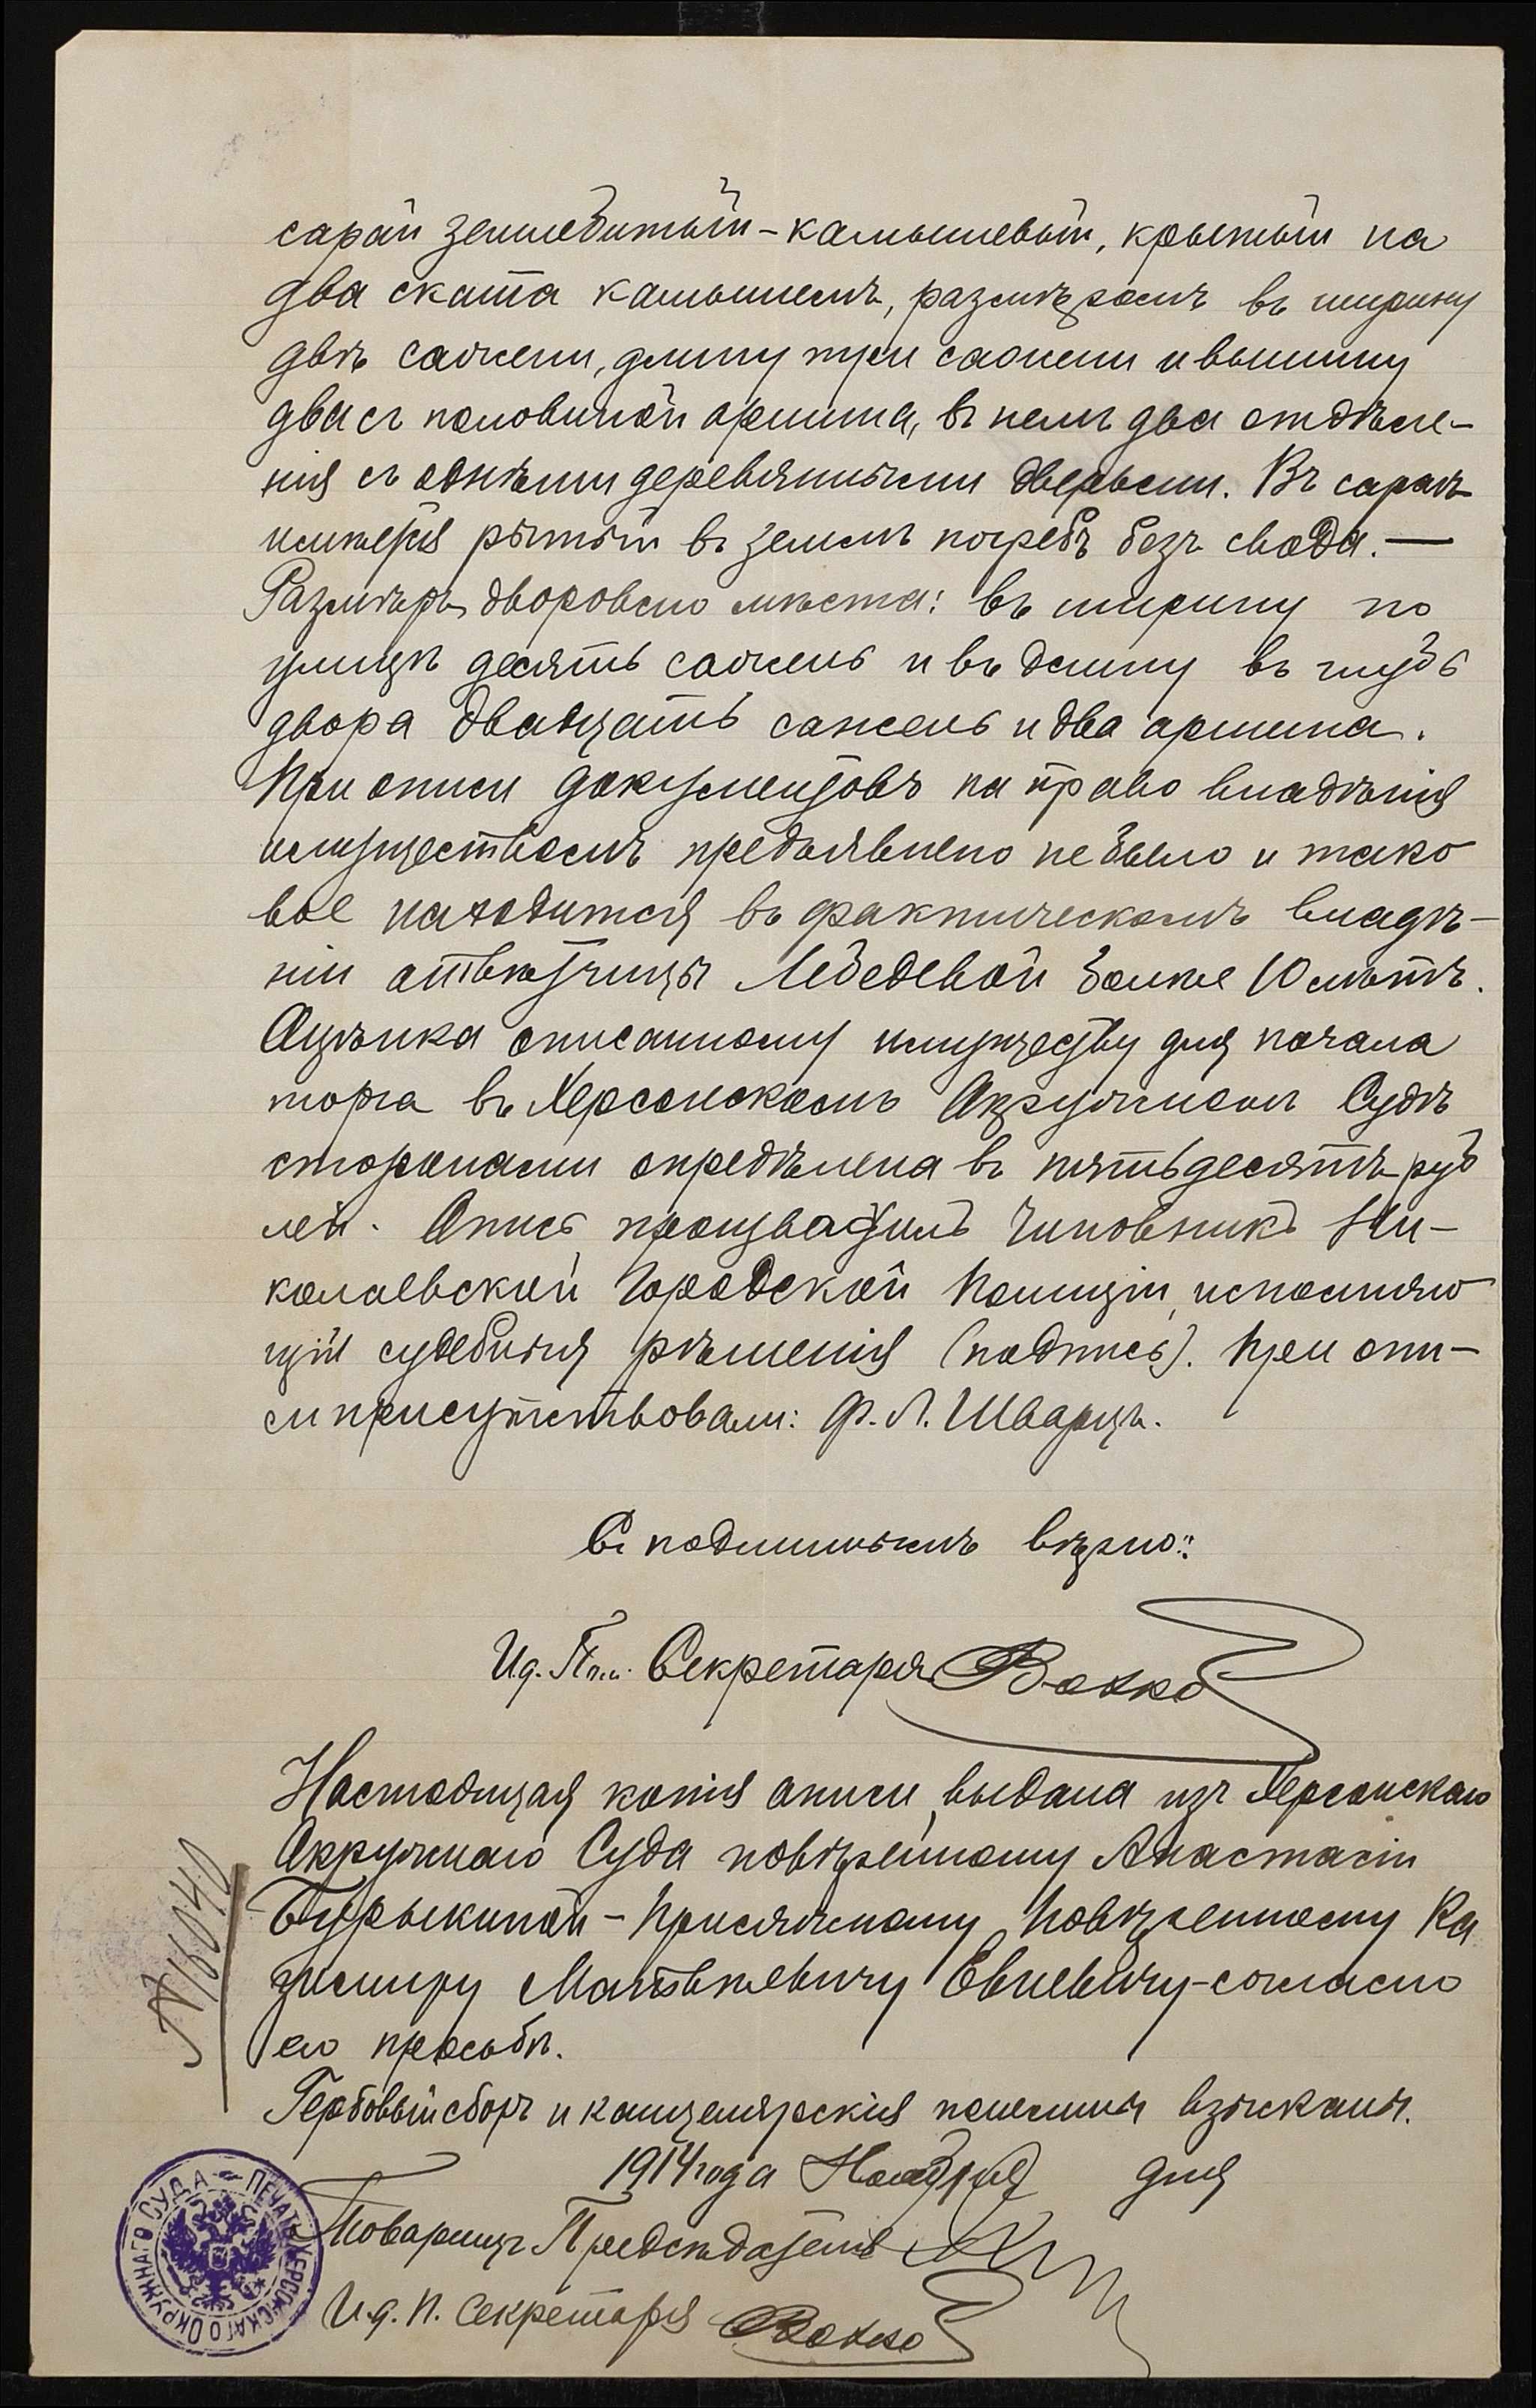 сарай землебитый-камышевый, крытый на
два ската камышемъ, размѣромъ въ ширину
двѣ сажени, длину три сажени и вышину
два съ половиной аршина, въ немъ два отдѣле-
нія съ однѣми деревянными дверьми. Въ сараѣ
имѣется рытый въ землѣ погребъ безъ свода. —
Размѣръ двороваго мѣста: въ ширину по
улицѣ десять сажень и въ длину въ глубь
двора двадцать сажень и два аршина.
При описи документовъ на право владѣнія
имуществомъ предъявлено не было и тако
вое находится въ фактическомъ владѣ-
ніи отвѣтчицы Лебедевой болѣе 10 лѣтъ.
Оцѣнка описанному имуществу для начала
торга въ Херсонскомъ Окружномъ Судѣ
сторонами опредѣлена въ пятьдесятъ руб
лей. Опись производилъ чиновникъ Ни-
колаевской Городской Полиціи, исполняю
щій судебныя рѣшенія (подпись). При опи-
си присутствовали: Ф. Л. Шварцъ.
Съ подлиннымъ вѣрно:
И.д. Пом. Секретаря
Настоящая копія описи выдана изъ Херсонскаго
Окружнаго Суда повѣренному Анастасіи
Бурыкиной - Присяжному Повѣренному Ка
зимиру Матвѣевичу Евневичу - согласно
его просьбѣ.
Гербовый сборъ и канцелярскія пошлины взысканы.
1914 года Ноября дня
№16040
Товарищъ Предсѣдателя
И.д. П. Секретаря
ПЕЧАТЬ ХЕРСОНСКАГО ОКРУЖНАГО СУДА